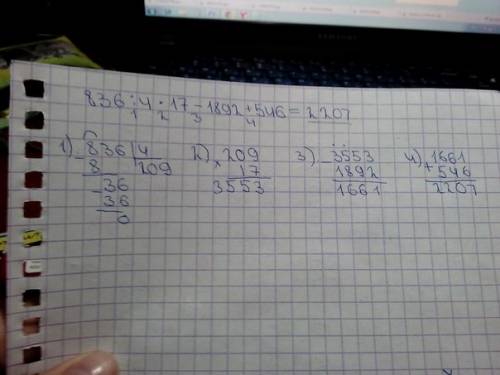 836:4·17-1892+546=2207
1 2 3 4
1) 836 4 2) 209 3) 3553 4) 1661
- 8 209 × 17 - 1892 + 546
- 36 3553 1661 2207
36
0